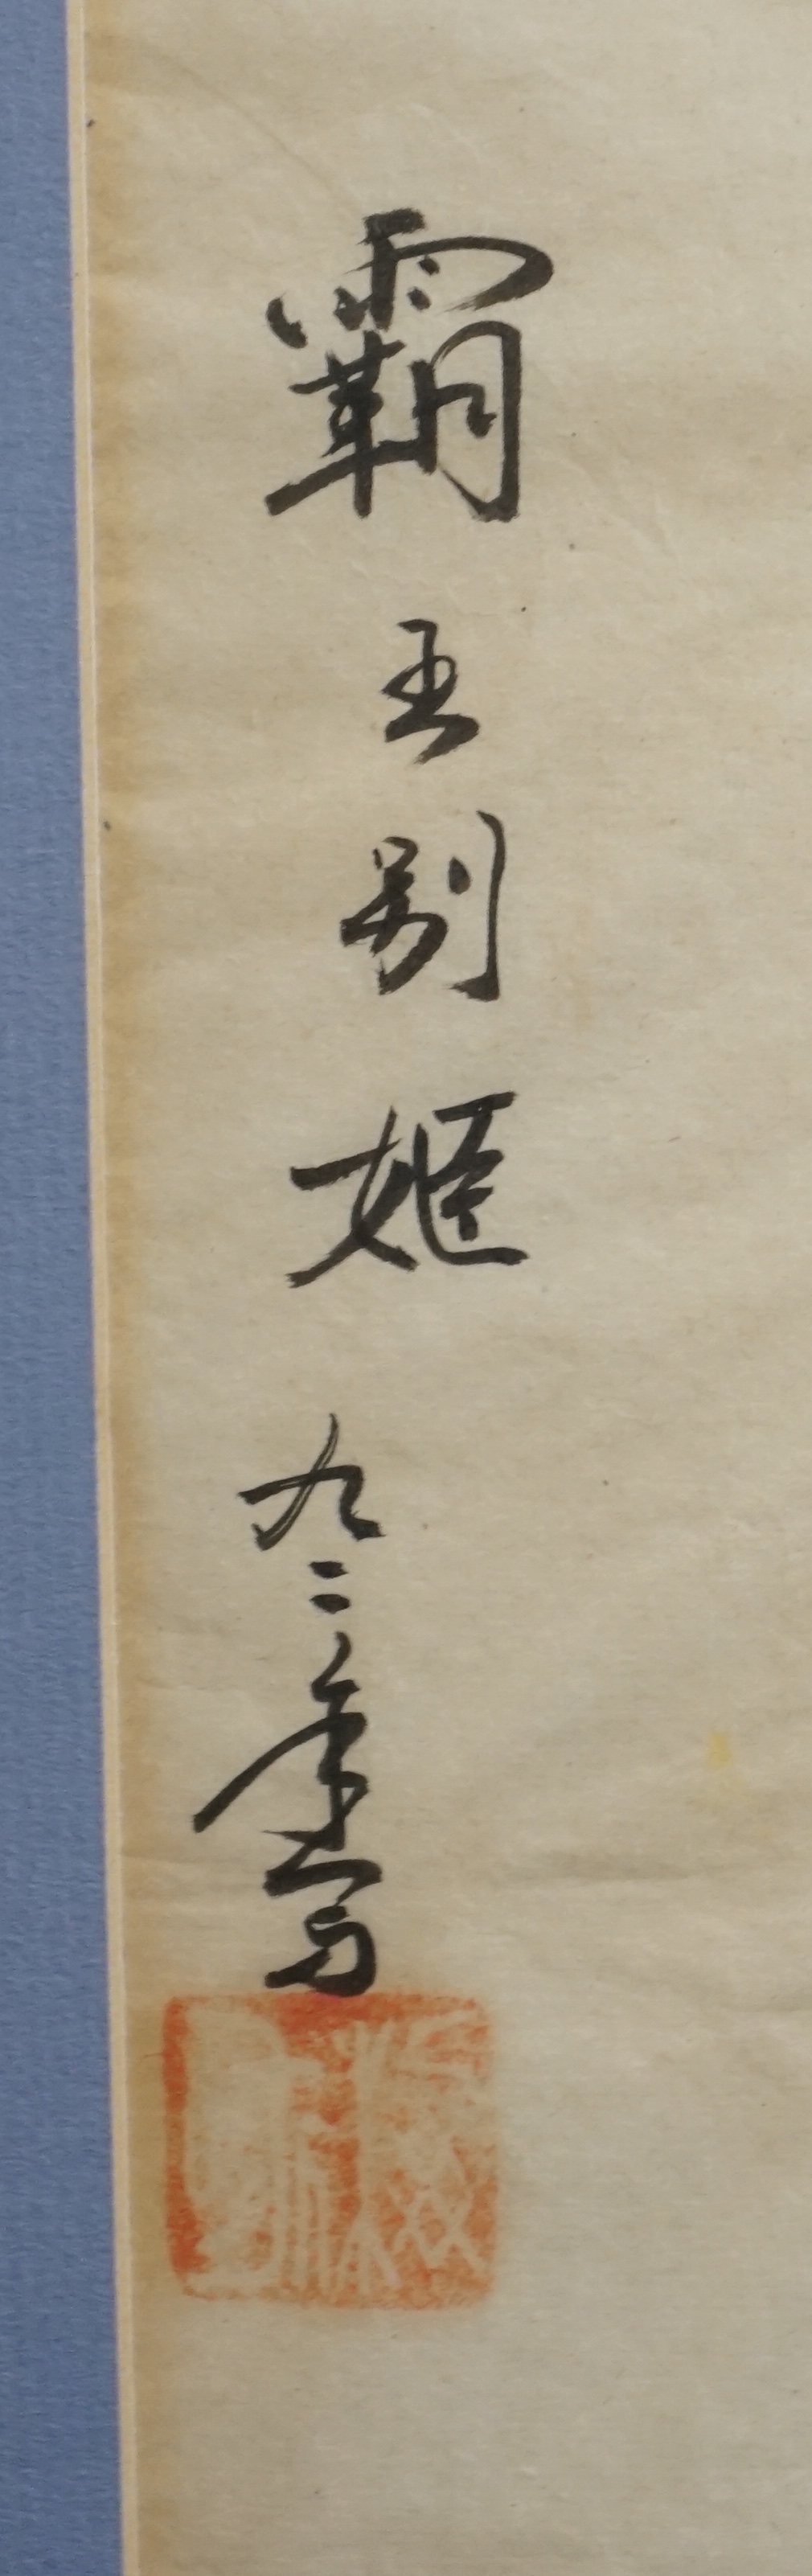 霸王别姬 九二年